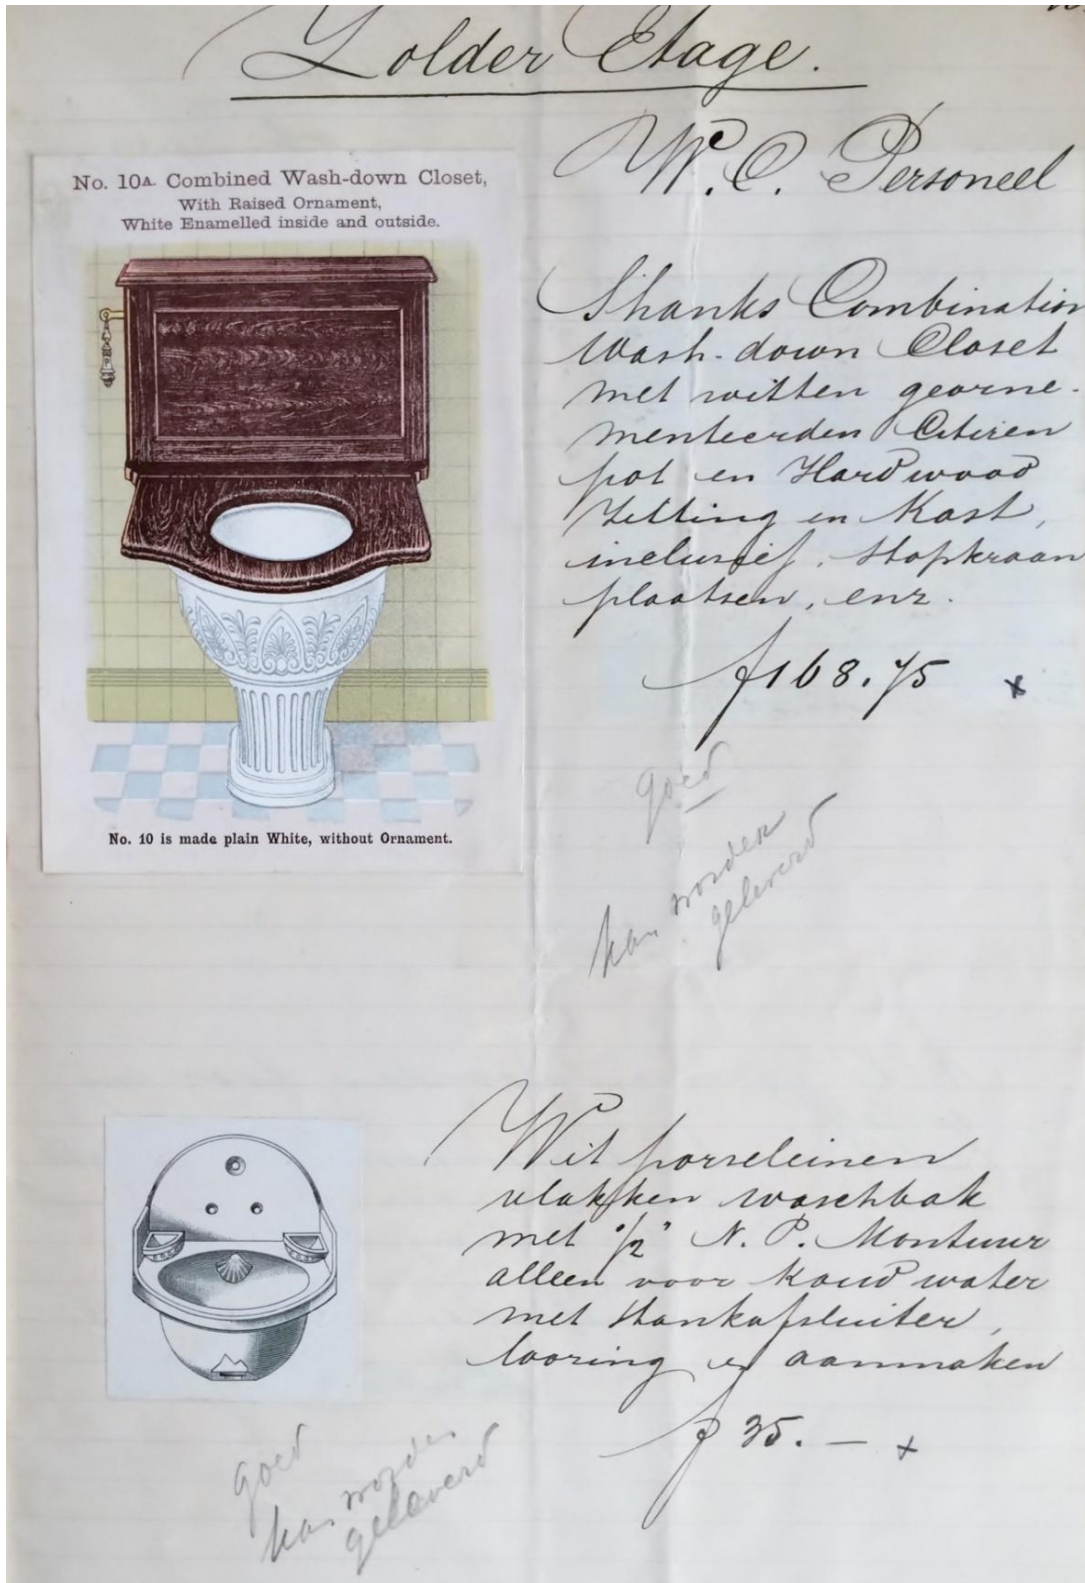 Zolder Etage.
W.C. Personeel
No. 10A Combined Wash-down Closet,
With Raised Ornament,
White Enamelled inside and outside.
No. 10 is made plain White, without Ornament.
Shanks Combination
Wash-down Closet
met witten georne-
menteerden Citeren
pot en Hardwood
Zitting en Kast,
inclusief. Stopkraan
plaatsen, enz.
f 168.75 x
goed
kan worden
geleverd
Wit porseleinen
vlakken waschbak
met 1/2" N. P. Montuur
alleen voor Koud water
met Stankafsluiter,
looring en aanmaken
f 35. — x
goed
kan worden
geleverd